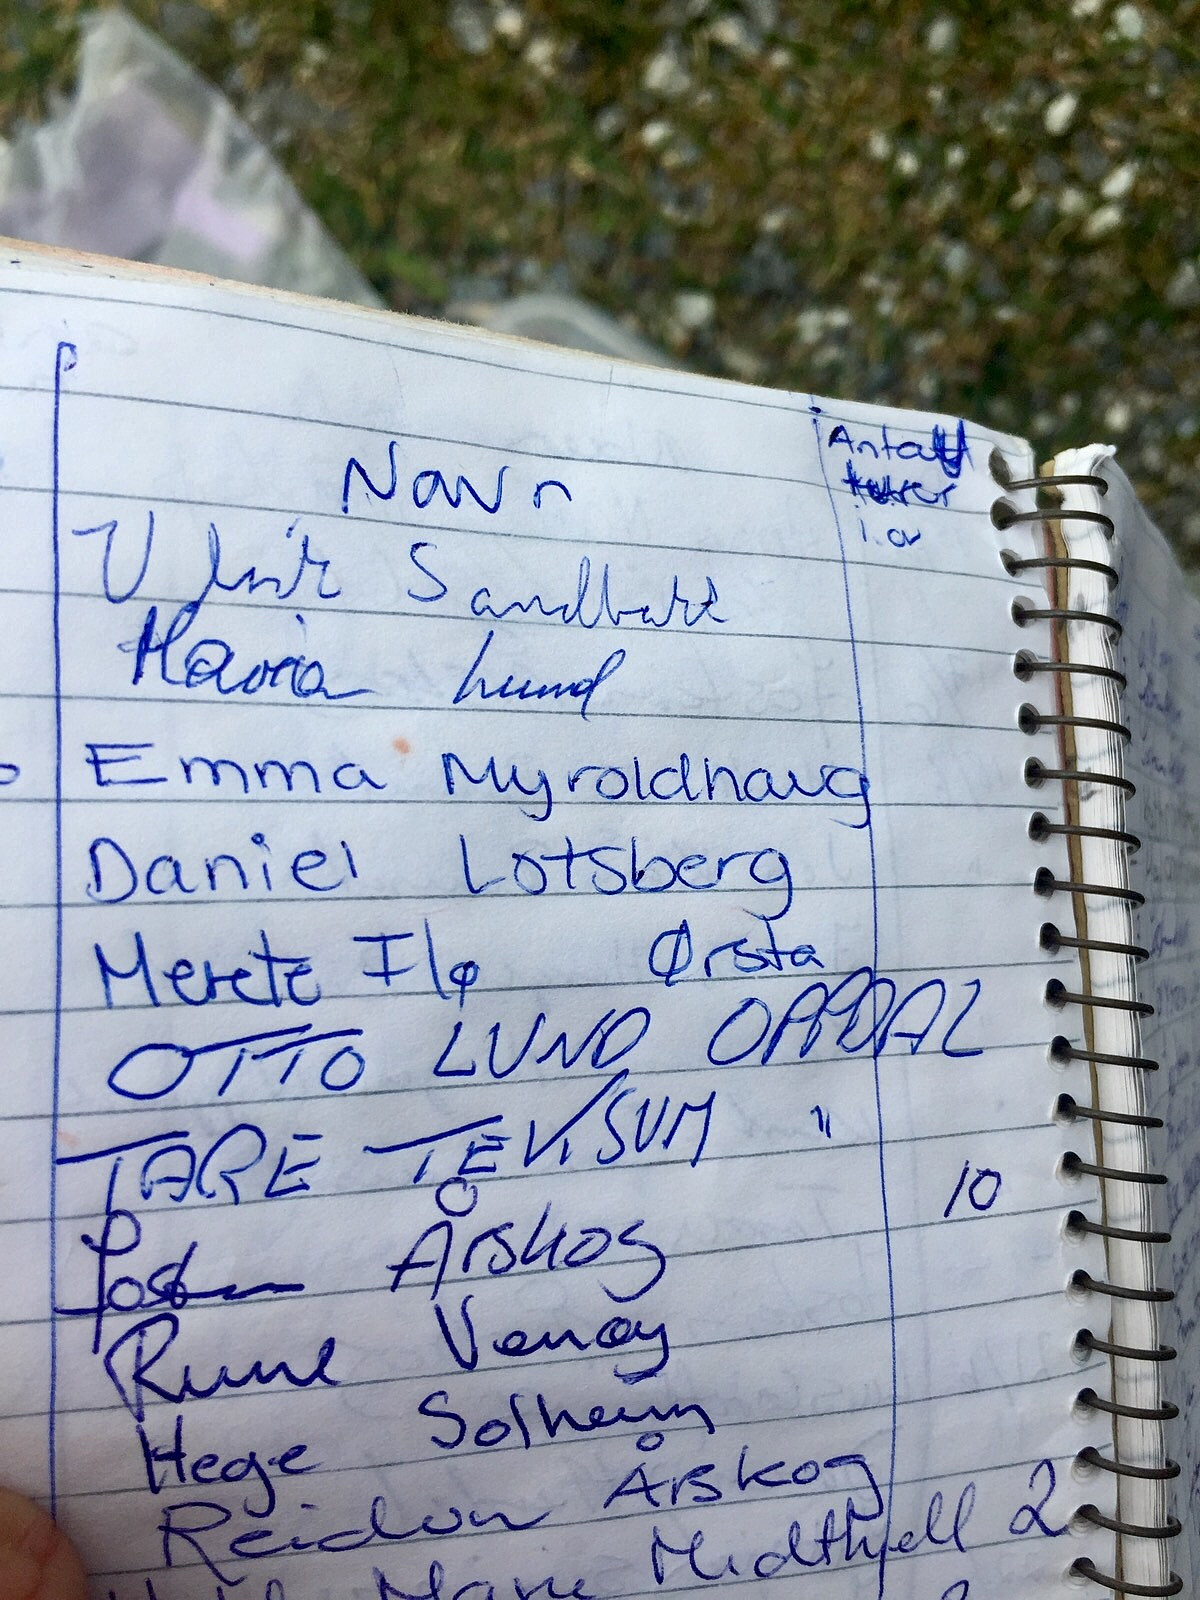 Navn
Antall
turer
i år
Ulrik Sandbakk
Maria Lund
Emma Myroldhaug
Daniel Lotsberg
Merete Ilø Ørsta
OTTO LUND OPPDAL
TARE "
Årskog 10
Rune Venøy
Hege Solheim
Reidun Årskog
Marie Midthjell 2